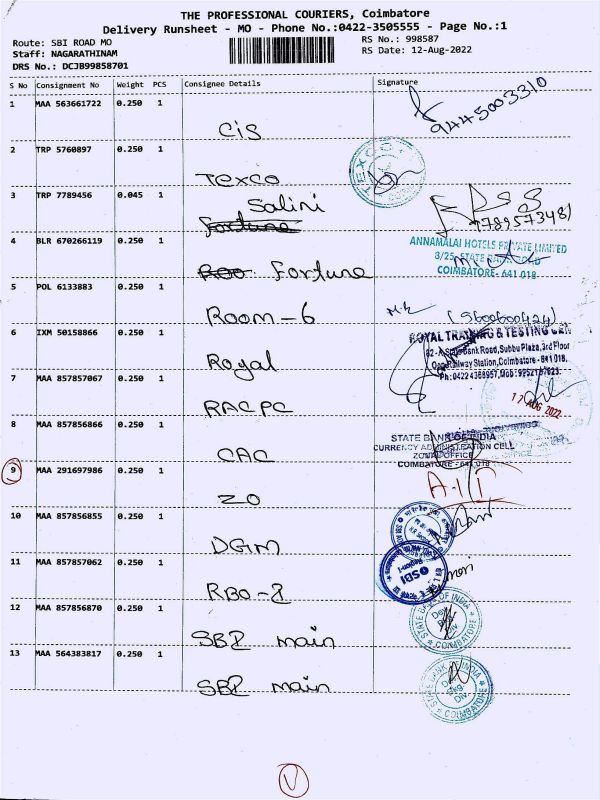 THE PROFESSIONAL COURIERS, Coimbatore
Delivery Runsheet - MO - Phone No.:0422-3505555 - Page No.:1
Route: SBI ROAD MO
RS No.: 998587
Staff: NAGARATHINAM
RS Date: 12-Aug-2022
DRS No.: DCJB99858701
S No Consignment No Weight PCS Consignee Details Signature
1 MAA 563661722 0.250 1
9445003310
CIS
2 TRP 5760897 0.250 1
TEXCO
Texco
3 TRP 7789456 0.045 1
Salini
Fortune
4 BLR 670266119 0.250 1
ANNAMALAI HOTELS PRIVATE LIMITED
8/25, STATE BANK
COIMBATORE- 641 018
Roo Fortune
5 POL 6133883 0.250 1
Room-6
(9600600424)
6 IXM 50158866 0.250 1
ROYAL TRAINING & TESTING CEN
82-A, State Bank Road, Subbu Plaza, 3rd Floor
Opp. Railway Station, Coimbatore - 641 018.
Royal
7 MAA 857857067 0.250 1
12 AUG 2022
RACPC
8 MAA 857856866 0.250 1
STATE BANK OF INDIA
CURRENCY ADMINISTRATION CELL
ZONAL OFFICE
COIMBATORE - 641 018
CAC
9 MAA 291697986 0.250 1
ZO
10 MAA 857856855 0.250 1
DGM
11 MAA 857857062 0.250 1
SBI
Region-I
RBO-2
12 MAA 857856870 0.250 1
STATE BANK OF INDIA
COIMBATORE
SBI main
13 MAA 564383817 0.250 1
STATE BANK OF INDIA
COIMBATORE
SBI main